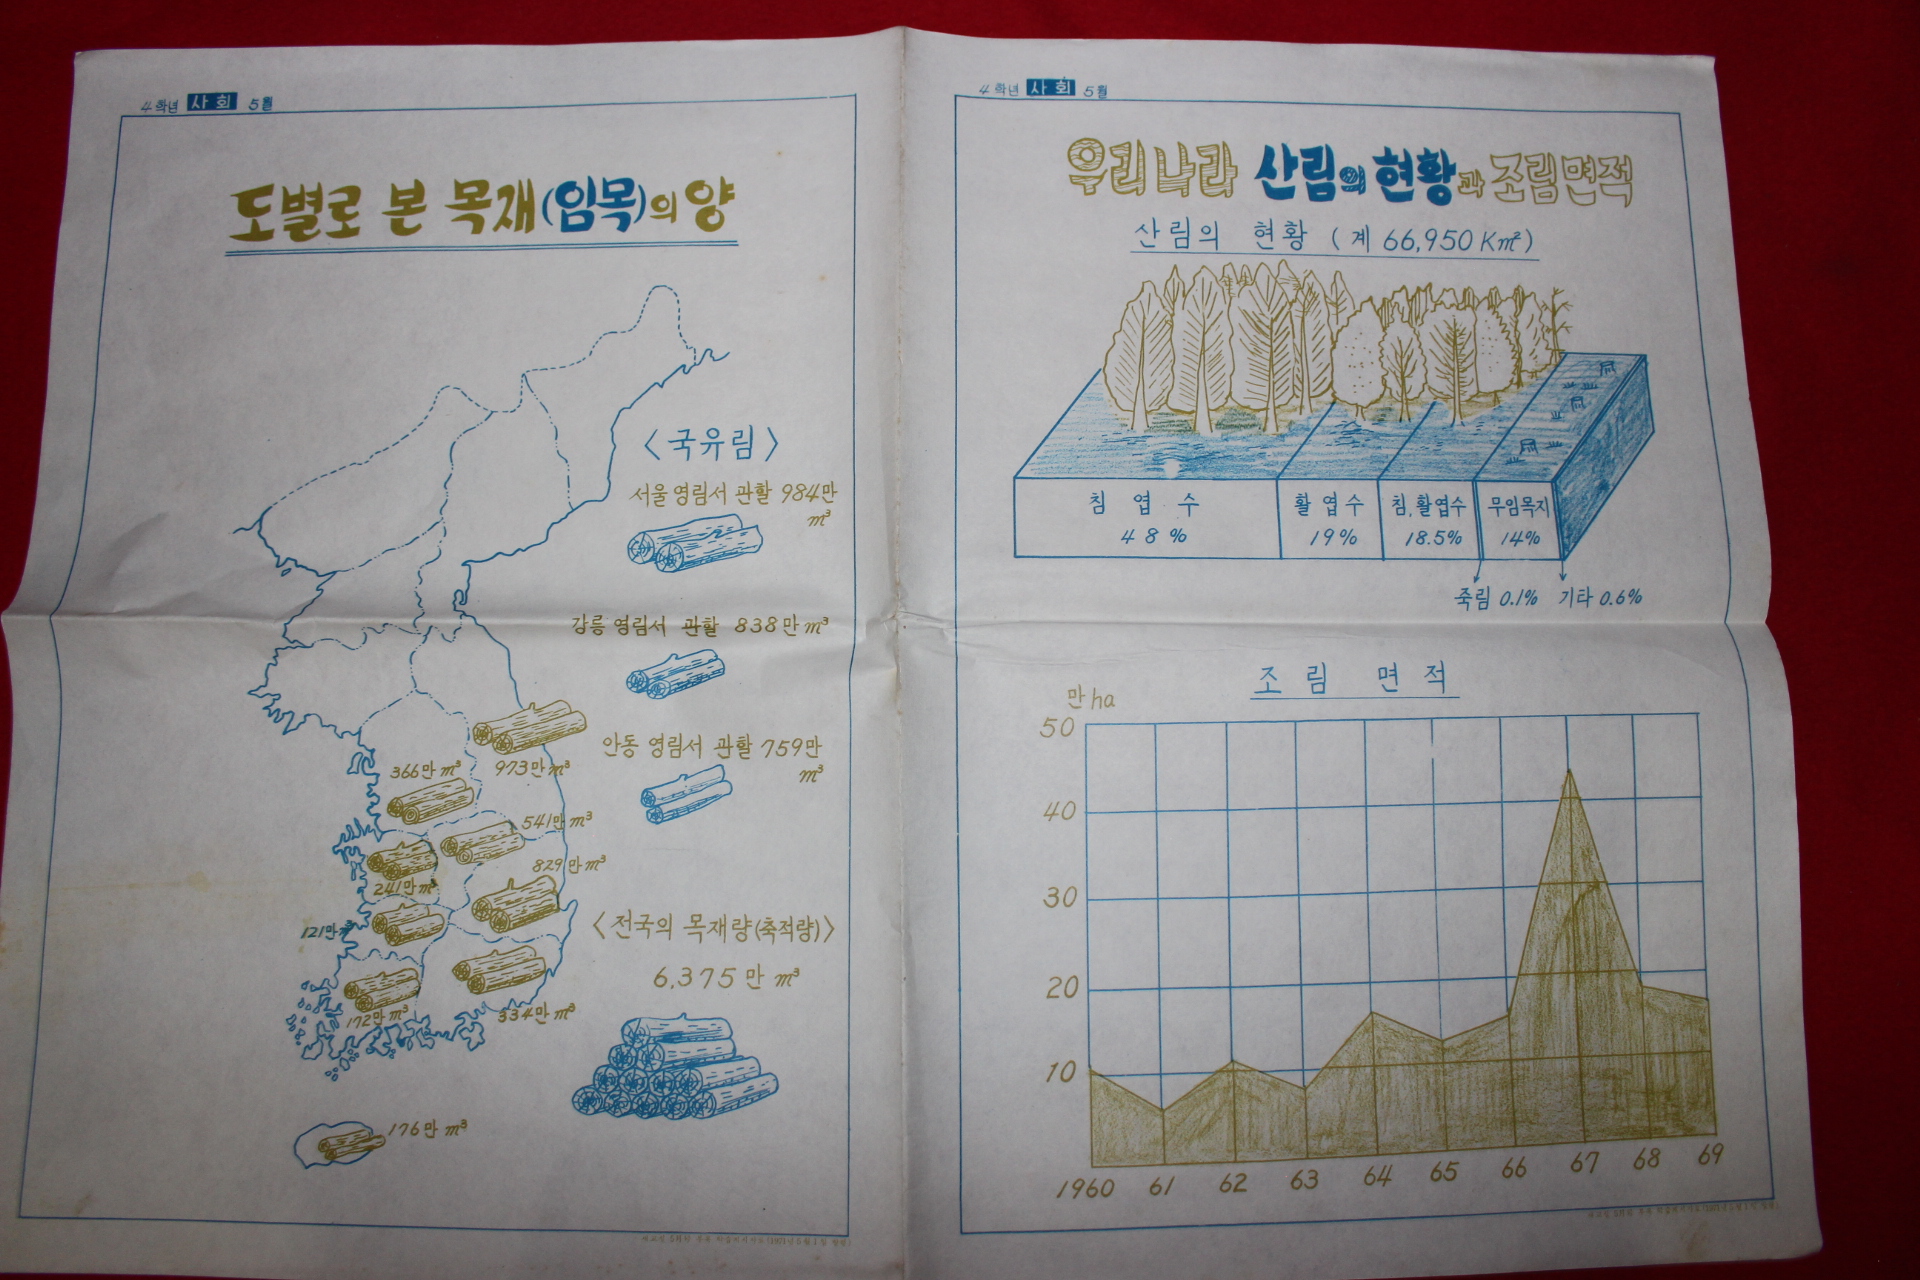 4학년 사회 5월
도별로 본 목재(임목)의 양
〈국유림〉
서울 영림서 관할 984만
m³
강릉 영림서 관할 838만 m³
안동 영림서 관할 759만
m³
366만 m³
973만 m³
541만 m³
829만 m³
241만 m³
121만 m³
172만 m³
334만 m³
176만 m³
〈전국의 목재량(축적량)〉
6,375만 m³
4학년 사회 5월
우리나라 산림의 현황과 조림면적
산림의 현황 (계 66,950 Km²)
침엽수
48%
활엽수
19%
침,활엽수
18.5%
무임목지
14%
죽림 0.1% 기타 0.6%
조림 면적
만 ha
50
40
30
20
10
1960 61 62 63 64 65 66 67 68 69